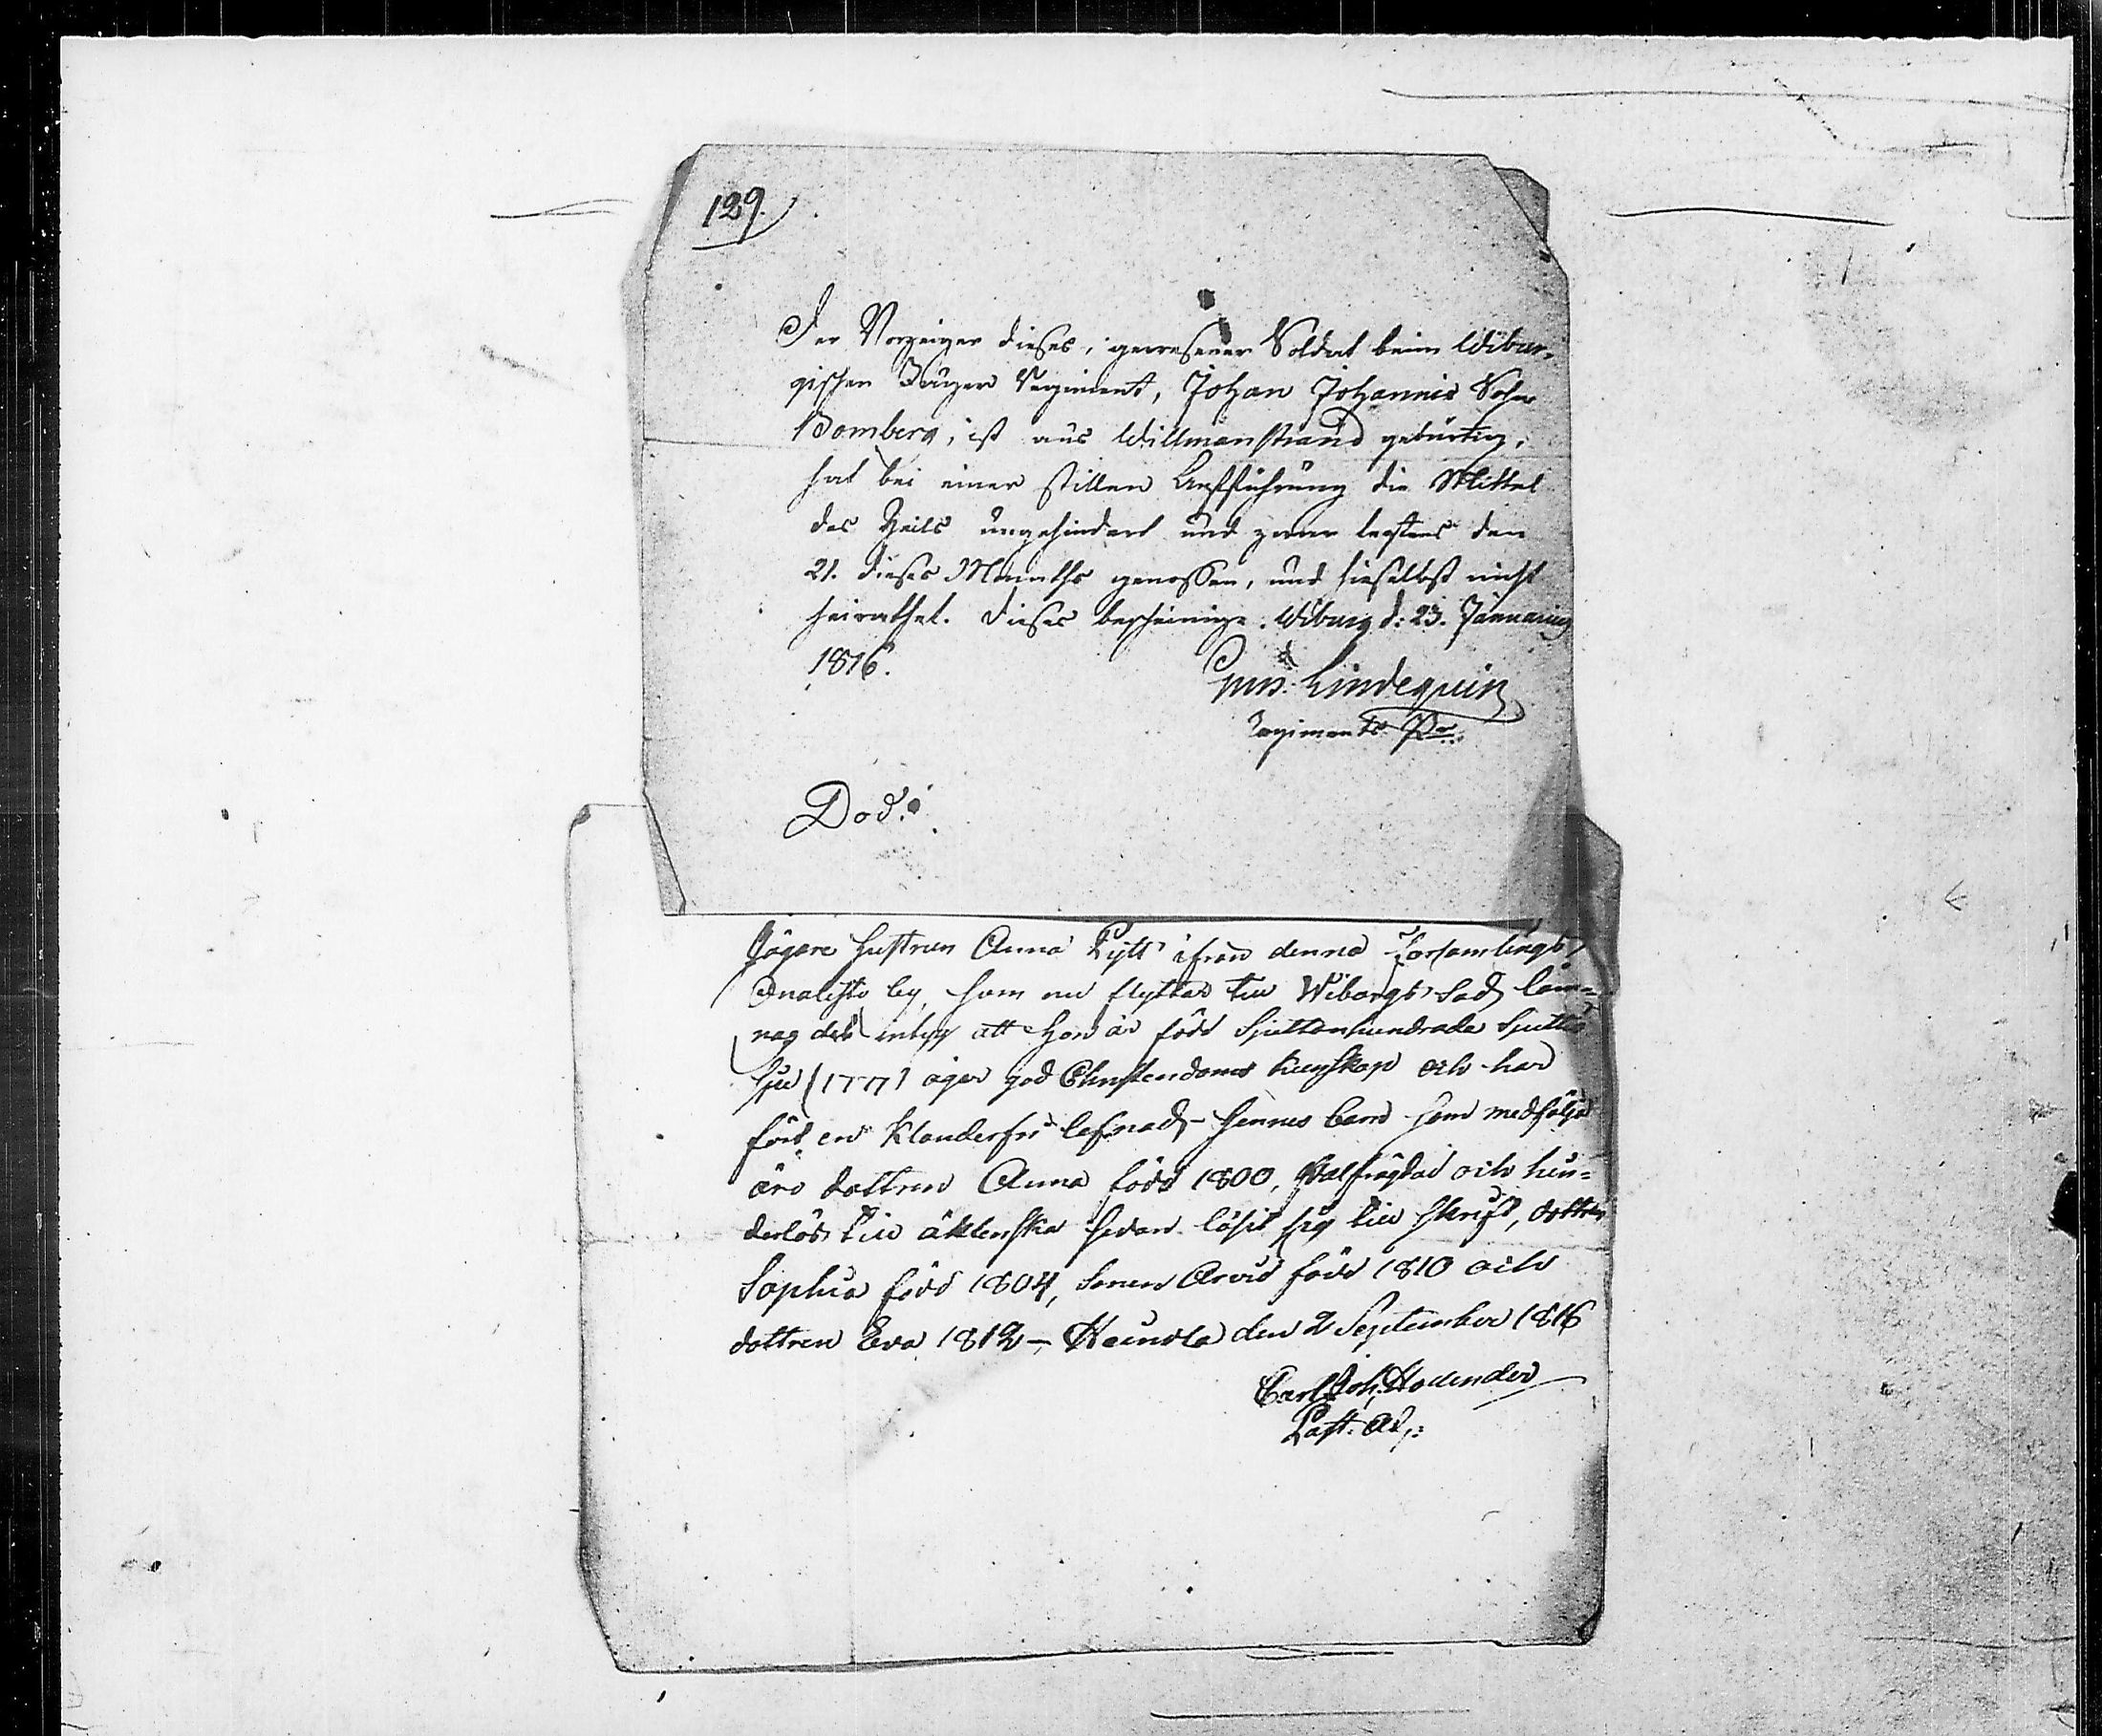 129.
Der Vorzeiger dieses, gewesener Soldat beim Wibur-
gischen Jäger Regiment, Johan Johannis Sohn
Bomberg, ist aus Willmanstrand gebürtig,
hat bei einer stillen Aufführung die Mittel
des Heils ungehindert und zwar letztens den
21. dieses Monaths genossen, und hieselbst nicht
heirathet. Dieses bescheinige. Wiburg d: 23. Januarius
1816.
Lindequin
Regiments Pr.
Död.
Jägare hustrun Anna Pytt ifrån denna Församlings
by, som nu flyttar till Wiborgs Stad, läm-
nas det intyg att hon är född Sjuttonhundrade Sjuttio
Sju (1777) äger god Christendoms kunskap och har
fört en klanderfri lefnad, - hennes barn som medfölja
äro dottren Anna född 1800, och hin-
derlös till äktenskap sedan läsit sig till skrift, dottren
Sophia född 1804, sonen Arvid född 1810 och
dottren Eva 1812 - Heinola den 2 September 1816
Carl Joh.
Past. Adj.